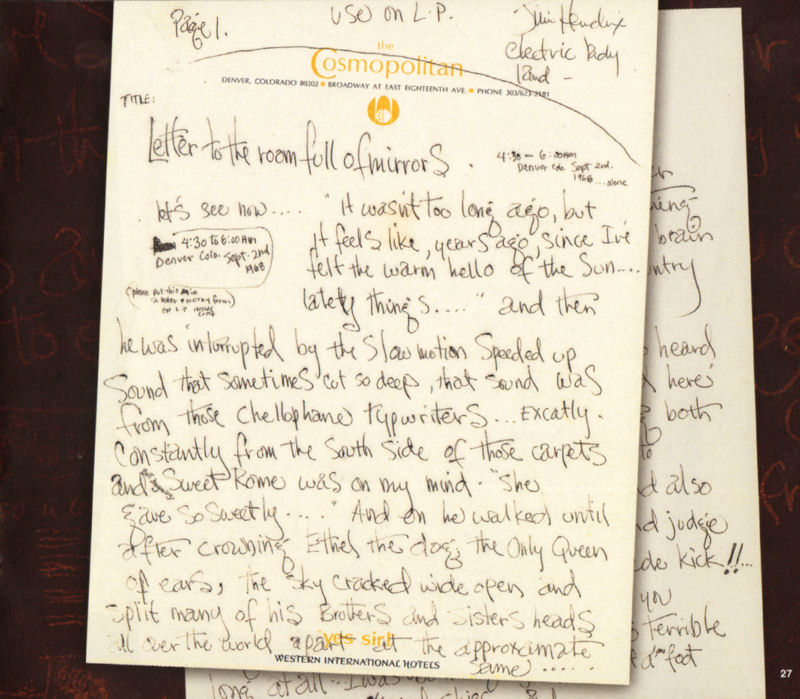 Page 1.
USE ON L.P.
Jimi Hendrix
Electric Lady
land -
the
Cosmopolitan
DENVER, COLORADO 80202 ■ BROADWAY AT EAST EIGHTEENTH AVE. ■ PHONE 303/623-2181
TITLE:
Letter to the room full of mirrors.
4:30 - 6:00AM
Denver Colo. Sept. 2nd.
1968 ...alone
let's see now.... "It wasn't too long ago, but
it feels like, years ago, since I've
felt the warm hello of the Sun....
lately things....." and then
4:30 to 6:00 AM
Denver Colo. Sept. 2nd
1968
(please put this in
a letter form)
on L.P. inside
cover
he was interrupted by the Slow motion Speeded up
Sound that sometimes cut so deep, that sound was
from those chellophane typwriters... Excatly.
Constantly from the South side of those carpets
and Sweet Rome was on my mind. "She
gave so sweetly....." And on he walked until
after crowning Ethel the dog, the Only Queen
of ears, the sky cracked wide open and
split many of his Brothers and sisters heads
all over the world apart at the approximate
same .....
yes sir!
WESTERN INTERNATIONAL HOTELS
brain
heard
here
both
to
also
judge
kick!!...
you
terrible
foot
long at all. I was
27